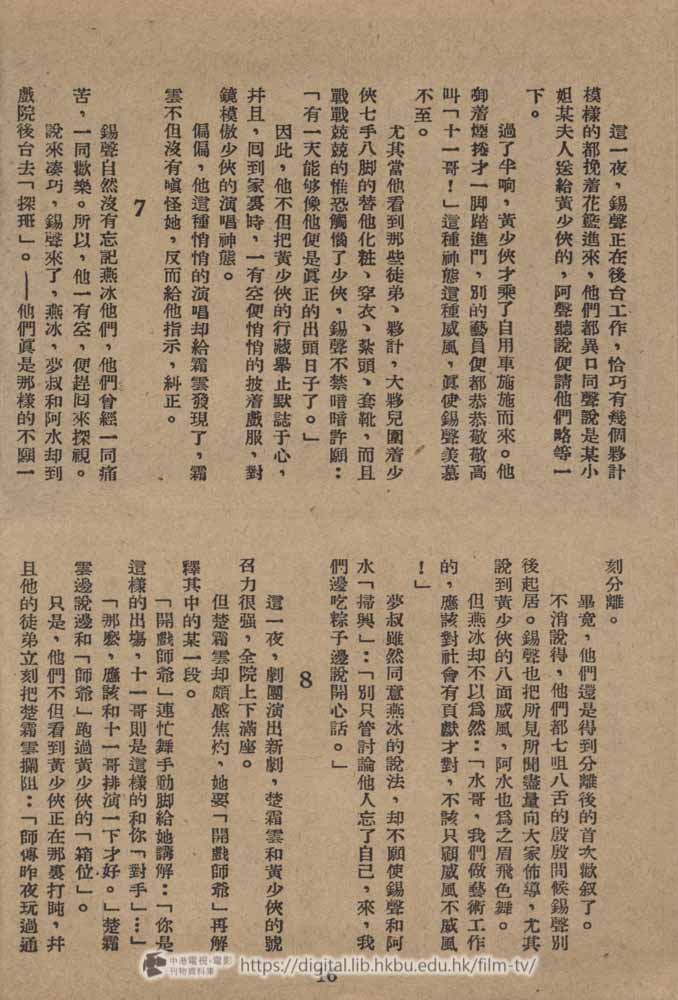 這一夜,錫聲正在後台工作,恰巧有幾個夥計
模樣的都挽着花籃進來,他們都異口同聲說是某小
姐某夫人送給黃少俠的,阿聲聽說便請他們略等一
下。
過了半响,黃少俠才乘了自用車施施而來。他
啣着煙捲才一脚踏進門,別的藝員便都恭恭敬敬高
叫「十一哥!」這種神態這種威風,眞使錫聲羡慕
不至。
尤其當他看到那些徒弟、夥計,大夥兒圍着少
俠七手八脚的替他化粧、穿衣、紮頭、套靴,而且
戰戰兢兢的惟恐觸惱了少俠,錫聲不禁暗暗許願:
「有一天能够像他便是眞正的出頭日子了。」
因此,他不但把黃少俠的行藏舉止默誌于心,
幷且,回到家裏時,一有空便悄悄的披着戲服,對
鏡模倣少俠的演唱神態。
偏偏,他這種悄悄的演唱却給霜雲發現了,霜
雲不但沒有嗔怪她,反而給他指示,糾正。
7
錫聲自然沒有忘記燕冰他們,他們曾經一同痛
苦,一同歡樂。所以,他一有空,便趕回來探視。
說來凑巧,錫聲來了,燕冰,夢叔和阿水却到
戲院後台去「探班」。——他們眞是那樣的不願一
刻分離。
畢竟,他們還是得到分離後的首次歡叙了。
不消說得,他們都七咀八舌的殷殷問候錫聲別
後起居。錫聲也把所見所聞盡量向大家佈導,尤其
說到黃少俠的八面威風,阿水也爲之眉飛色舞。
但燕冰却不以爲然:「水哥,我們做藝術工作
的,應該對社會有貢獻才對,不該只顧威風不威風
!」
夢叔雖然同意燕冰的說法,却不願使錫聲和阿
水「掃興」:「別只管討論他人忘了自己,來,我
們邊吃粽子邊說開心話。」
8
這一夜,劇團演出新劇,楚霜雲和黃少俠的號
召力很强,全院上下滿座。
但楚霜雲却頗感焦灼,她要「開戲師爺」再解
釋其中的某一段。
「開戲師爺」連忙舞手動脚給她講解:「你是
這樣的出塲,十一哥則是這樣的和你「對手」…」
「那麽,應該和十一哥排演一下才好。」楚霜
雲邊說邊和「師爺」跑過黃少俠的「箱位」。
只是,他們不但看到黃少俠正在那裏打盹,幷
且他的徒弟立刻把楚霜雲攔阻:「師傅昨夜玩過通
16
中港電視·電影
刊物資料庫
https://digital.lib.hkbu.edu.hk/film-tv/